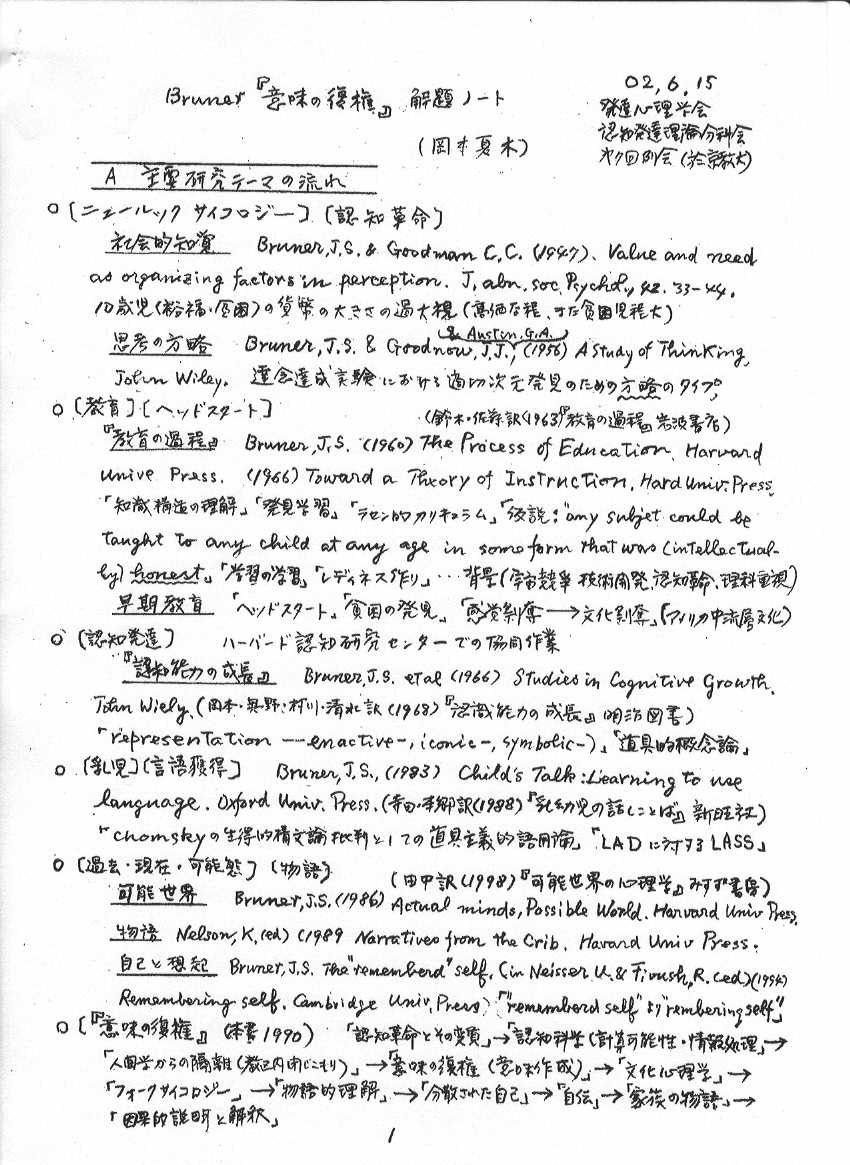 Bruner『意味の復権』 解題ノート
02.6.15
発達心理学会
認知発達理論分科会
例会 (於京教大)
(岡本夏木)
A 主要研究テーマの流れ
○〔ニュールック サイコロジー〕〔認知革命〕
社会的知覚 Bruner, J.S. & Goodman C.C. (1947). Value and need
as organizing factors in perception. J. abn. soc. Psychol., 42. 33-44.
10歳児(裕福・貧困)の貨幣の大きさの過大視(高価な程、また貧困児程大)
& Austin, G.A.
思考の方略 Bruner, J.S. & Goodnow, J.J., (1956) A Study of Thinking,
John Wiley. 達念達成実験における適切次元発見のための方略のタイプ。
○〔教育〕〔ヘッドスタート〕 (鈴木・佐藤訳(1963)『教育の過程』岩波書店)
『教育の過程』 Bruner, J.S. (1960) The Process of Education. Harvard
Unive Press. (1966) Toward a Theory of Instruction. Hard Univ. Press.
「知識構造の理解」「発見学習」「ラセン的カリキュラム」「仮説:"any subjet could be
taught to any child at any age in some form that was (intellectual-
ly) honest」「学習の学習」「レディネス作り」… 背景(宇宙競争 技術開発、認知革命、理科重視)
早期教育 「ヘッドスタート」「貧困の発見」「感覚剝奪 → 文化剝奪」「(アメリカ中流層文化)
○〔認知発達〕 ハーバード認知研究センターでの協同作業
『認知能力の成長』 Bruner, J.S. et al (1966) Studies in Cognitive Growth.
John Wiely. (岡本・奥野・村川・清水訳(1968)『認識能力の成長』明治図書)
「representation ― enactive-, iconic-, symbolic-)」「道具的概念論」
○〔乳児〕〔言語獲得〕 Bruner, J.S., (1983) Child's Talk: Learning to use
language. Oxford Univ. Press. (寺田・本郷訳(1988)『乳幼児の話しことば』新曜社)
「chomskyの生得的構文論批判としての道具主義的語用論」「LADに対するLASS」
○〔過去・現在・可能態〕〔物語〕 (田中訳(1998)『可能世界の心理学』みすず書房)
可能世界 Bruner, J.S. (1986) Actual minds, Possible World. Harvard Univ Press.
物語 Nelson, K. (ed) (1989 Narratives from the Crib. Havard Univ Press.
自己と想起 Bruner, J.S. The "rememberd" self. (in Neisser U. & Fivush, R. (ed) (1994)
Remembering self. Cambridge Univ. Press) "rememberd self" より "rembering self"」
○〔『意味の復権』(本書1990) 「認知革命とその変質」→「認知科学(計算可能性・情報処理」→
「人間学からの隔離(教区内閉じこもり)」→「意味の復権(意味作成)」→「文化心理学」→
「フォークサイコロジー」→「物語的理解」→「分散された自己」→「自伝」→「家族の物語」→
「因果的説明と解釈」
1